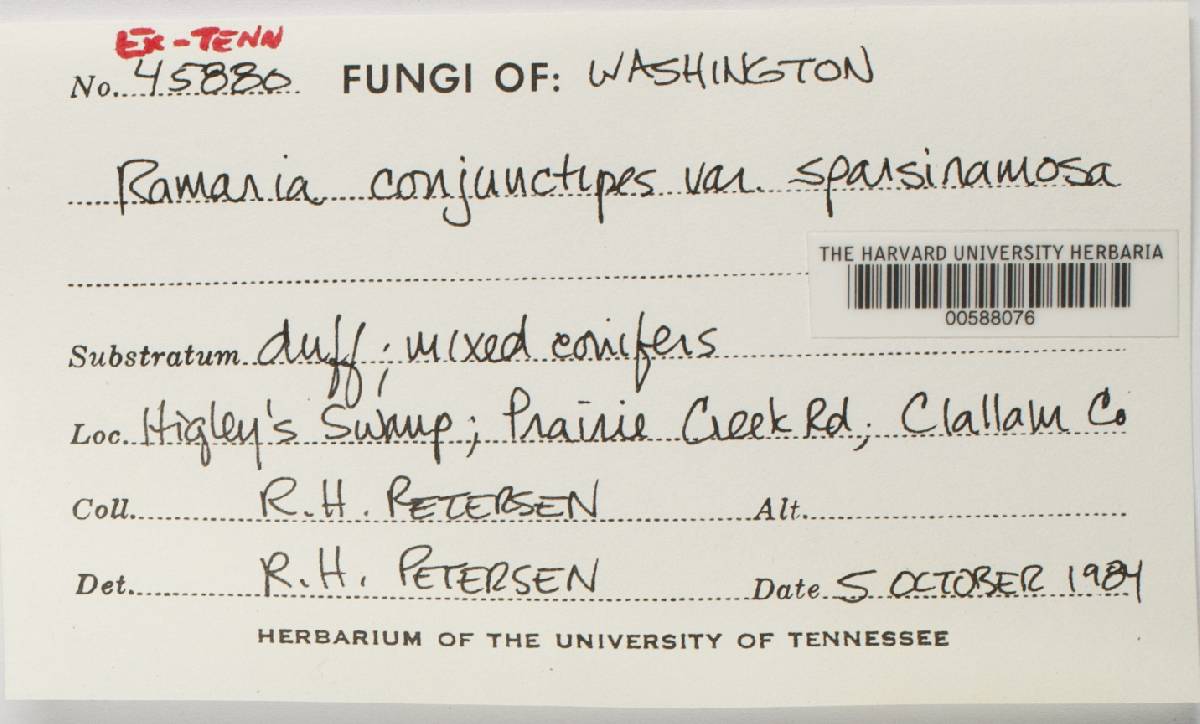 EX-TENN
No. 45880 FUNGI OF: WASHINGTON
Ramaria conjunctipes var. sparsiramosa
THE HARVARD UNIVERSITY HERBARIA
00588076
Substratum duff; mixed conifers
Loc. Higley's Swamp; Prairie Creek Rd; Clallam Co
Coll. R.H. PETERSEN Alt.
Det. R.H. PETERSEN Date 5 OCTOBER 1984
HERBARIUM OF THE UNIVERSITY OF TENNESSEE